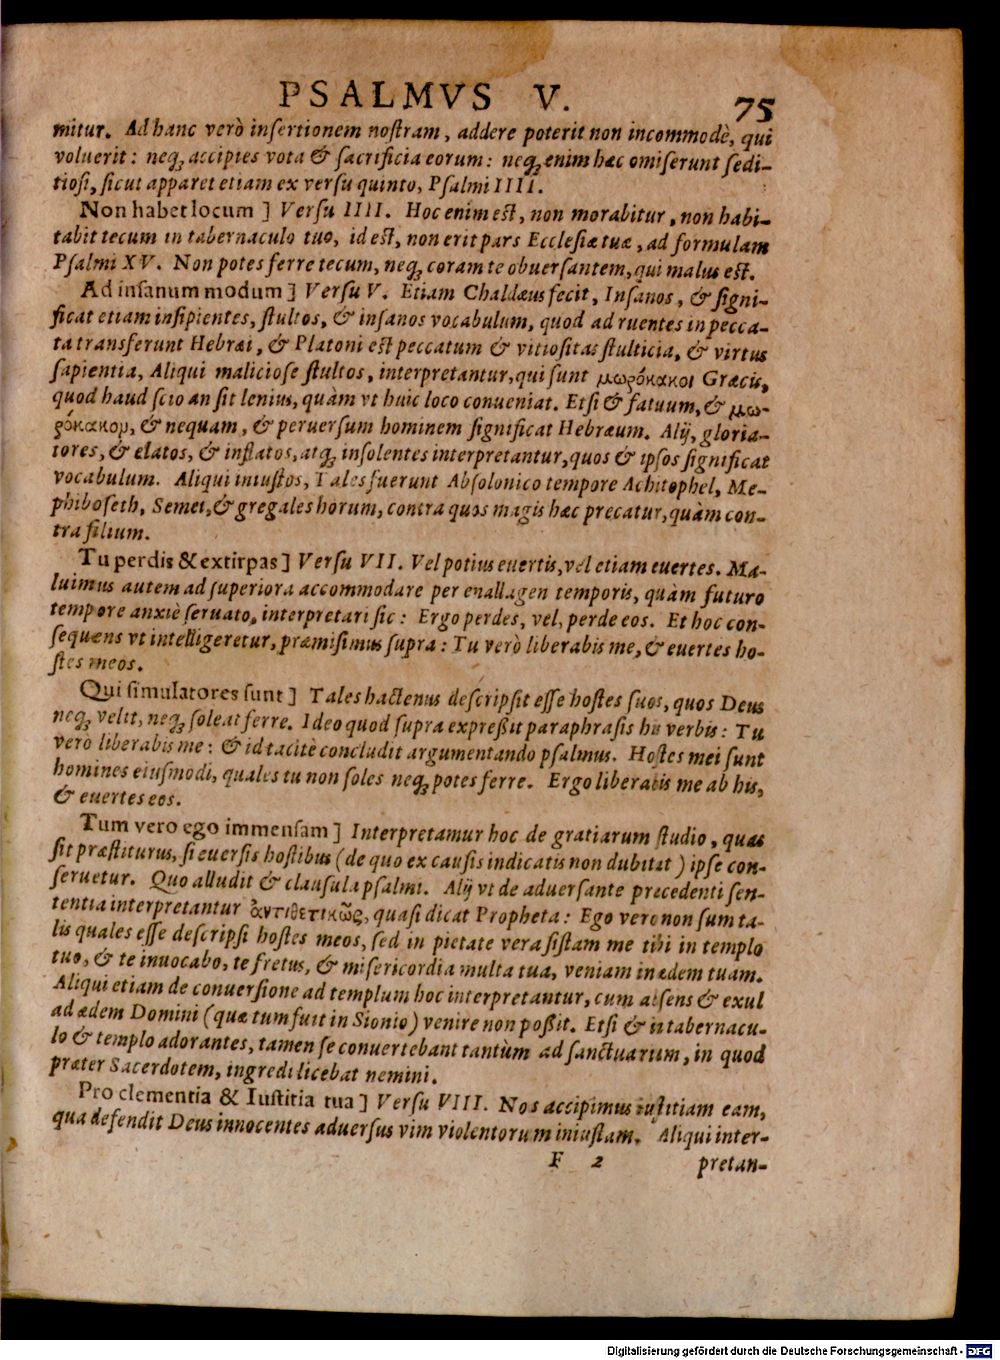 PSALMVS V. 75
mitur. Ad hanc verò insertionem nostram, addere poterit non incommodè, qui
voluerit: neq; accipies vota & sacrificia eorum: neq; enim hæc omiserunt sedi-
tiosi, sicut apparet etiam ex versu quinto, Psalmi IIII.
Non habet locum ] Versu IIII. Hoc enim est, non morabitur, non habi-
tabit tecum in tabernaculo tuo, id est, non erit pars Ecclesiæ tuæ, ad formulam
Psalmi XV. Non potes ferre tecum, neq; coram te obuersantem, qui malus est.
Ad insanum modum ] Versu V. Etiam Chaldæus fecit, Insanos, & signi-
ficat etiam insipientes, stultos, & insanos vocabulum, quod ad ruentes in pecca-
ta transferunt Hebræi, & Platoni est peccatum & vitiositas stulticia, & virtus
sapientia, Aliqui maliciose stultos, interpretantur, qui sunt μωρόκακοι Græcis,
quod haud scio an sit lenius, quàm vt huic loco conueniat. Etsi & fatuum, & μω-
ρόκακομ, & nequam, & peruersum hominem significat Hebræum. Alij, gloria-
tores, & elatos, & inflatos, atq; insolentes interpretantur, quos & ipsos significat
vocabulum. Aliqui iniustos, Tales fuerunt Absolonico tempore Achitophel, Me-
phiboseth, Semei, & gregales horum, contra quos magis hæc precatur, quàm con-
tra filium.
Tu perdis & extirpas ] Versu VII. Vel potius euertis, vel etiam euertes. Ma-
luimus autem ad superiora accommodare per enallagen temporis, quàm futuro
tempore anxiè seruato, interpretari sic: Ergo perdes, vel, perde eos. Et hoc con-
sequens vt intelligeretur, præmisimus supra: Tu verò liberabis me, & euertes ho-
stes meos.
Qui simulatores sunt ] Tales hactenus descripsit esse hostes suos, quos Deus
neq; velit, neq; soleat ferre. Ideo quod supra expreßit paraphrasis his verbis: Tu
vero liberabis me: & id tacitè concludit argumentando psalmus. Hostes mei sunt
homines eiusmodi, quales tu non soles neq; potes ferre. Ergo liberabis me ab his,
& euertes eos.
Tum vero ego immensam ] Interpretamur hoc de gratiarum studio, quas
sit præstiturus, si euersis hostibus (de quo ex causis indicatis non dubitat) ipse con-
seruetur. Quo alludit & clausula psalmi. Alij vt de aduersante precedenti sen-
tentia interpretantur ἀντιθετικῶς, quasi dicat Propheta: Ego vero non sum ta-
lis quales esse descripsi hostes meos, sed in pietate vera sistam me tibi in templo
tuo, & te inuocabo, te fretus, & misericordia multa tua, veniam in ædem tuam.
Aliqui etiam de conuersione ad templum hoc interpretantur, cum absens & exul
ad ædem Domini (quæ tum fuit in Sionio) venire non poßit. Etsi & in tabernacu-
lo & templo adorantes, tamen se conuertebant tantùm ad sanctuarum, in quod
præter Sacerdotem, ingredi licebat nemini.
Pro clementia & Iustitia tua ] Versu VIII. Nos accipimus iustitiam eam,
qua defendit Deus innocentes aduersus vim violentorum iniustam. Aliqui inter-
F 2 pretan-
Digitalisierung gefördert durch die Deutsche Forschungsgemeinschaft - DFG